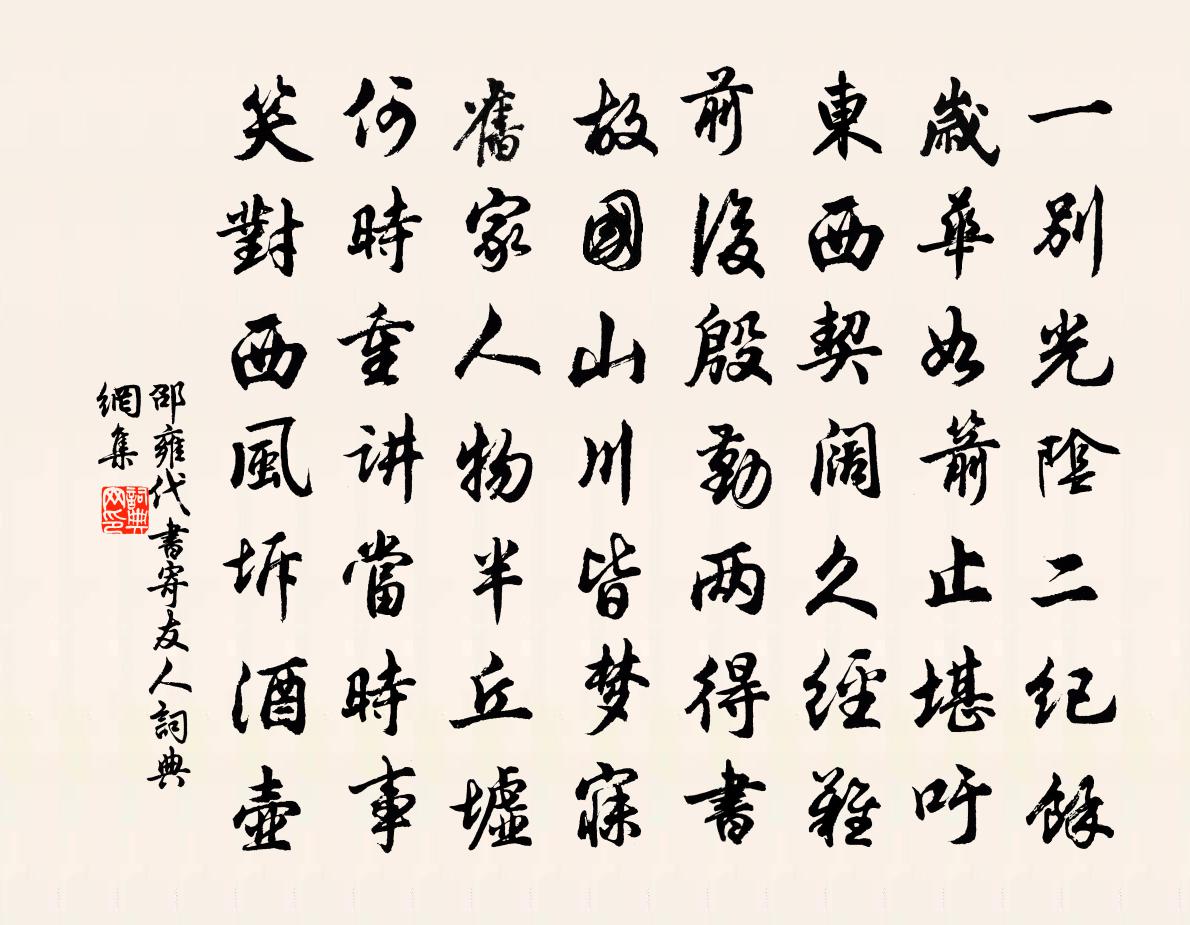 一別光陰二紀餘
歲華如箭止堪吁
東西契闊久經難
前後殷勤两得書
故國山川皆梦寐
舊家人物半丘墟
何時重讲當時事
笑對西風坼酒壺
邵雍代書寄友人詞典
網集
詞典
网印